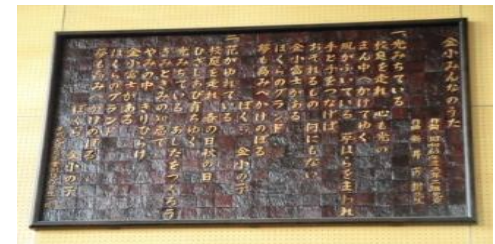 金小みんなのうた
一、光みちている
校庭を走れ 心も光の
まん中へかけてゆく
風がふいている
手と手をつなげば
おそれるもの 何にもない
金小富士がある
ぼくらのグランド
夢も高みへかけのぼる
ぼくら 金小の子
花がゆれている
校庭を走れ 春の日 秋の日
ひざしあび育ちゆく
光みちている あしたをつくろう
きみとぼくの知恵で
やみの中 きりひらけ
金小富士がある
ぼくらのグランド
夢も高みへかけのぼる
ぼくら 金小の子